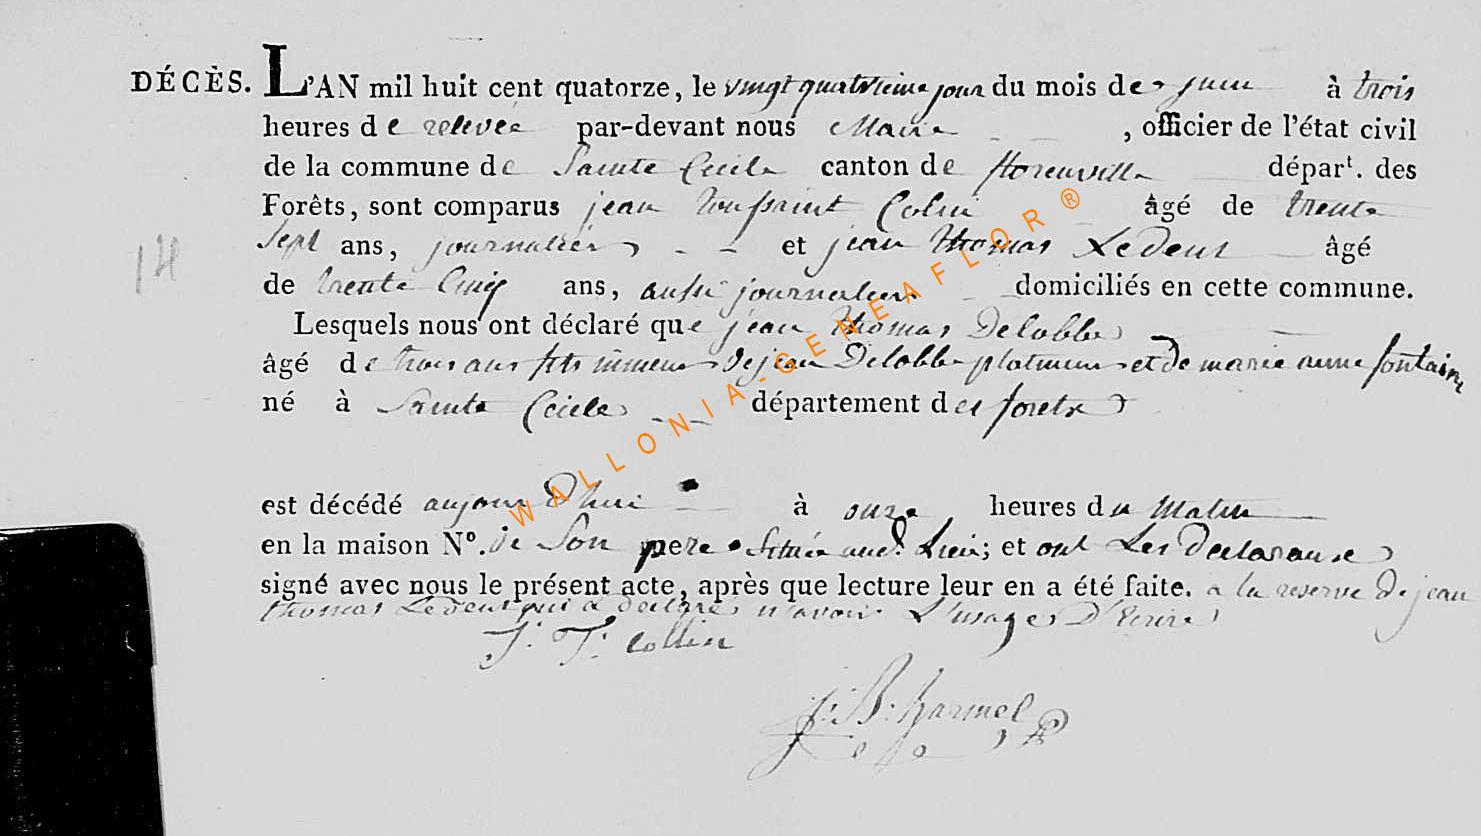 DÉCÈS. L'AN mil huit cent quatorze, le vingt quatrieme jour du mois de juin à trois
heures de relevée par-devant nous Maire , officier de l'état civil
de la commune de Sainte Cecile canton de florenville départ. des
Forêts, sont comparus jean toussaint Colin âgé de trente
Sept ans, journalier et jean thomas Ledent âgé
14
de trente Cinq ans, aussi journalier domiciliés en cette commune.
Lesquels nous ont déclaré que jean thomas Delobbe
âgé de trois ans fils mineur de jean Delobbe et de marie anne fontaine
né à Sainte Cecile département des forets
est décédé aujour d'hui à onze heures du Matin
en la maison Nº. de Son pere Située aud. Lieu; et ont Les declarans
signé avec nous le présent acte, après que lecture leur en a été faite. a la reserve de jean
thomas Ledent qui a declaré n'avoir L'usage D'Ecrire
J. T. Collin
J. B. harmel
WALLONIA-GENEAFLOR®